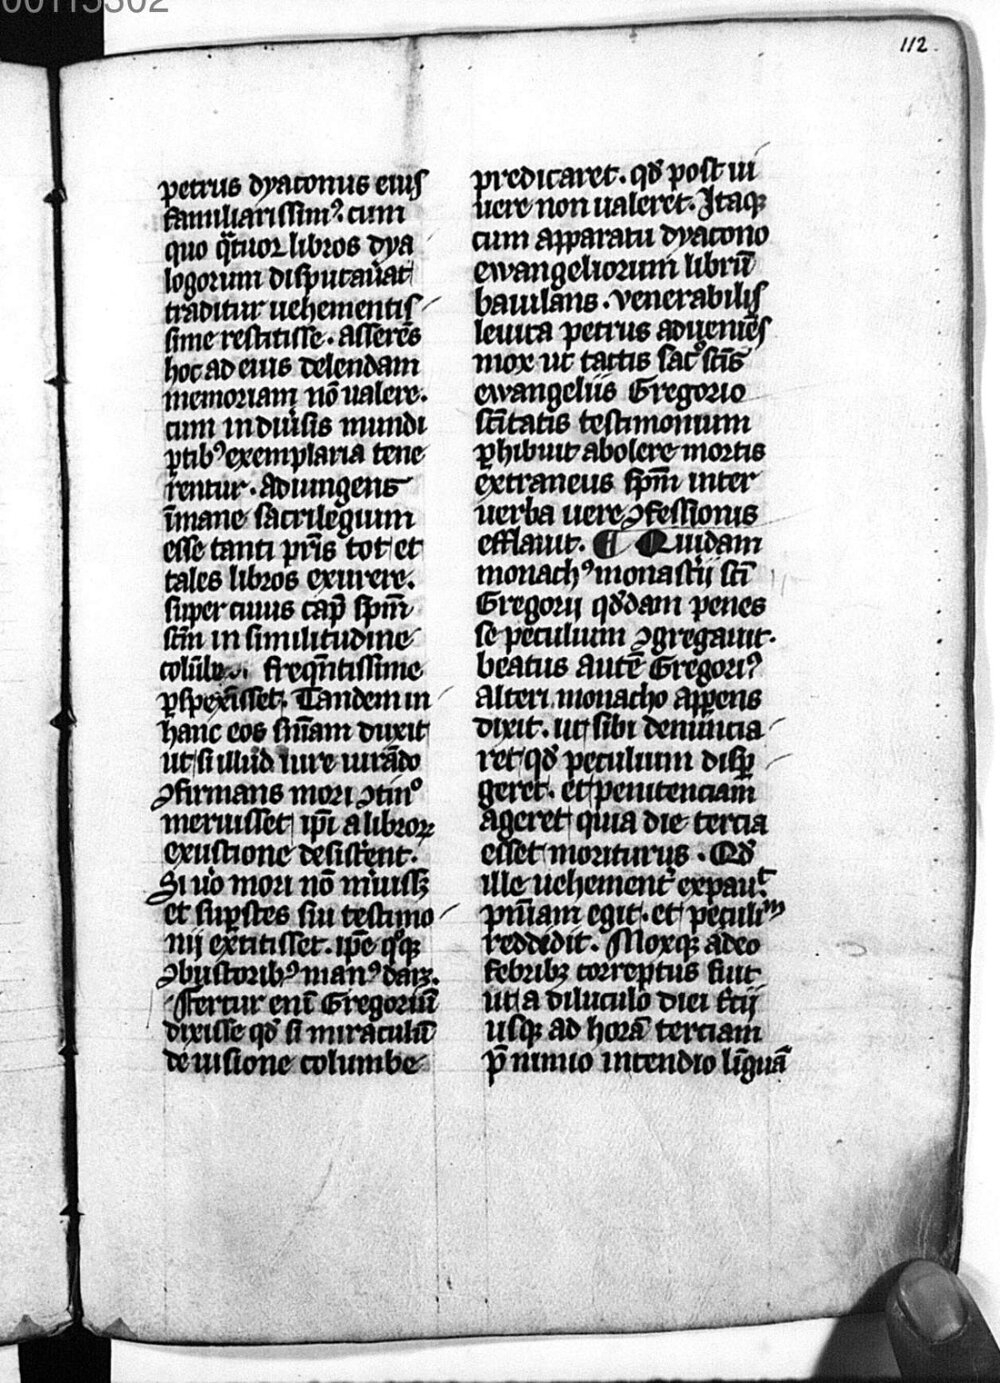 00115302
112.
petrus dyaconus eius
familiarissimꝰ. cum
quo qͣtuor libros dya
logorum disputau̅at
traditur uehementis
sime restitisse. asseres̅
hoc ad eius delendam
memoriam no̅ ualere.
cum in diuͥsis mundi
ꝑtibꝰ exemplaria tene
rentur. adiungens
i̅mane sacrilegium
esse tanti pr̅is tot et
tales libros exurere.
super cuius cap̅ sp̅m
sc̅m in similitudine
colu̅be freque̅ntissime
ꝑspexi̅sset. Tandem in
hanc eos sn̅iam duxit
ut si illud iure iura̅do
ꝯfirmans mori ꝯtinͦ
meruisset ip̅i a libroꝝ
exustione desist̅ent.
Si uͦo mori no̅ mͥuissꝫ
et suꝑstes sui testimo
nij extitisset. ip̅e qͦꝗꝫ
ꝯbustoribꝰ manꝰ darꝫ.
Fertur eni̅ Gregoriu̅
dixisse qd̅ si miraculu̅
de uisione columbe
predicaret. qd̅ post ui
uere non ualeret. Itaqꝫ
cum apparatu dyacono
ewangeliorum libru̅
baiulans. venerabilis
leuita petrus aduenie̅s
mox ut tactis sacͦsc̅is
ewangeliis Gregorio
sc̅itatis testimonium
ꝓhibuit abolere mortis
extraneus sp̅m inter
uerba uere ꝯfessionis
efflauit. ¶ Quidam
monachꝰ monast̅ij sc̅i
Gregorij qd̅dam penes
se peculium ꝯgregauit.
beatus aute̅ Gregoriꝰ
alteri monacho appe̅ns
dixit. ut sibi denuncia
ret qd̅ peculium disꝑ
geret. et penitenciam
ageret quia die tercia
esset moriturus. Qd̅
ille uehementͬ expauͭ.
pn̅iam egit. et peculiͫ
reddidit. Moxqꝫ adeo
febribꝫ correptus fuit
ut a diluculo diei t̅cij
usqꝫ ad hora̅ terciam
p̅ nimio incendio li̅gua̅